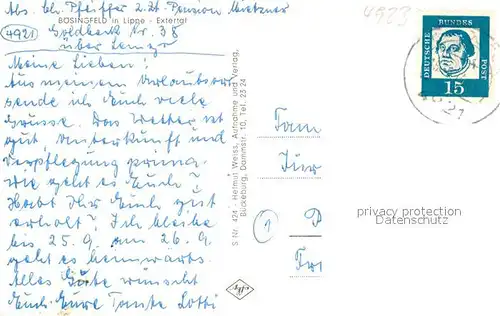 Abs. Ch. Pfeiffer z. Zt. Pension Mietzner
BÖSINGFELD in Lippe - Extertal
4923
4921 Goldbeck Nr. 38
über Lemgo
Meine Lieben!
Aus meinem Urlaubsort
sende ich Euch viele
Grüsse. Das Wetter ist
gut, Unterkunft und
Verpflegung prima.
Wie geht es Euch?
Habt Ihr Euch gut
erholt? Ich bleibe
bis 25.9. am 26.9.
geht es heimwärts.
Alles Gute wünscht
Euch Eure Tante Lotti
S Nr. 424 - Helmut Weiss, Aufnahme und Verlag,
Bückeburg, Dammstr. 10, Tel. 23 24
DEUTSCHE BUNDES POST
15
Fam
1
privacy protection
Datenschutz